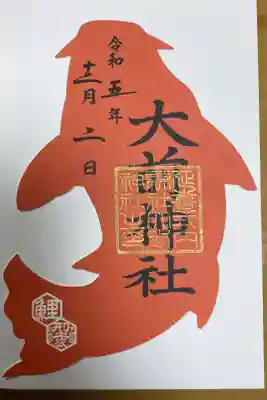 大前神社
令和五年
十二月二日
鯉